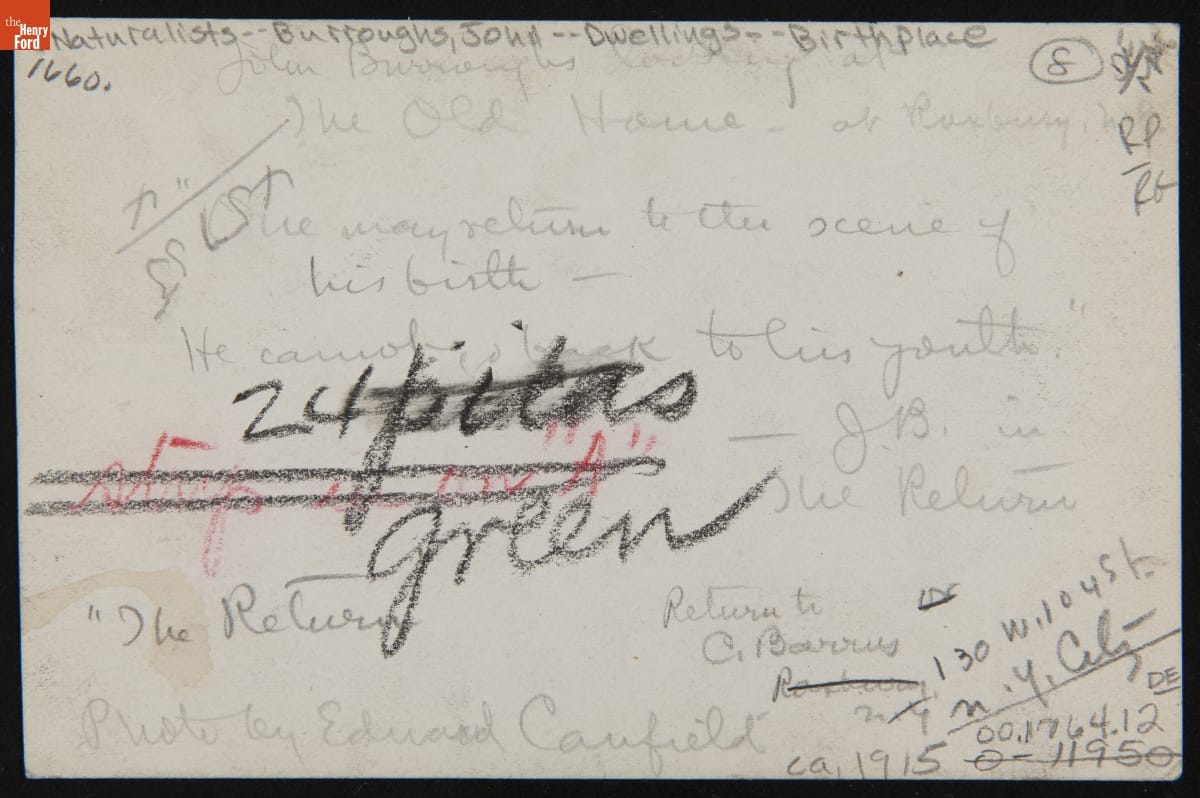 the Henry Ford
Naturalists--Burroughs, John--Dwellings--Birthplace
1660.
8
John Burroughs looking at
The Old Home - at Roxbury, N.Y.
RP
RG
"He may return to the scene of
his birth -
He cannot go back to his youth."
24 pikas
— J.B. in
The Return
strip in on "A"
green
"The Return
Return to
C. Barrus
Roxbury,
N.Y.
130 W. 104 St.
N.Y. City
DE
Photo by Edward Canfield
00.1764.12
ca, 1915
0-11950